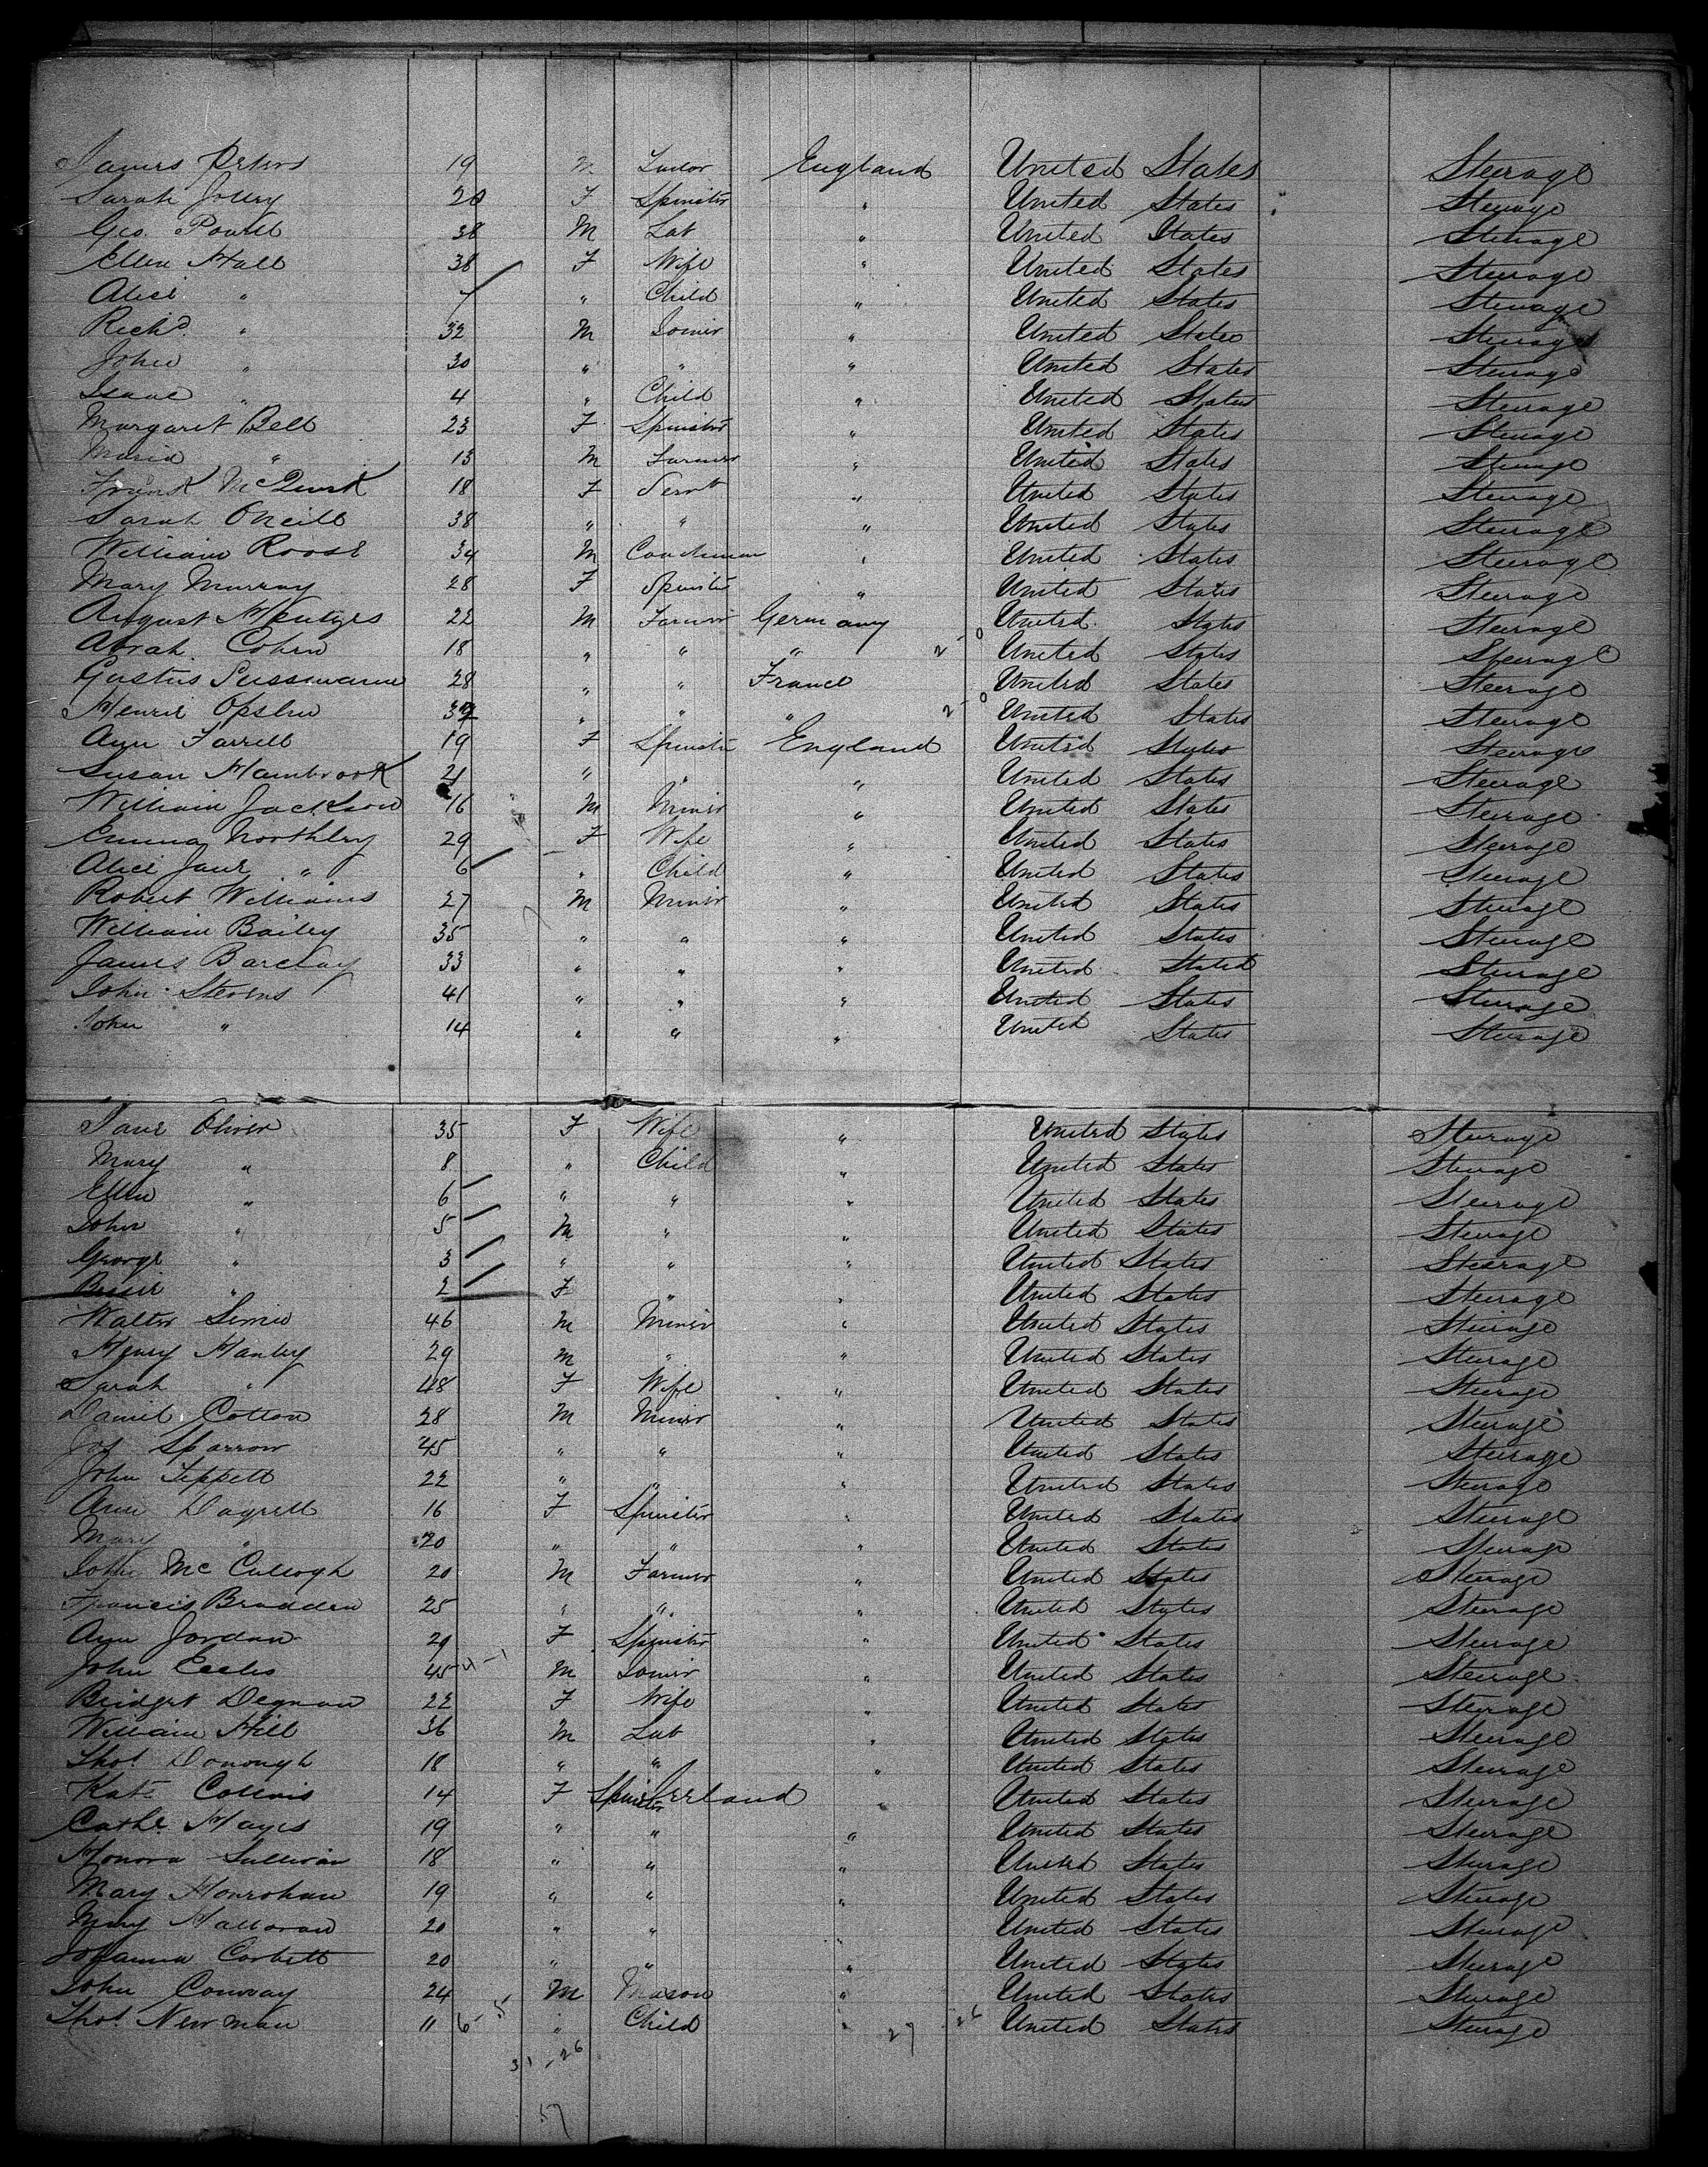 James Peters 19 M Tailor England United States Steerage
Sarah Jolley 20 F Spinster " United States Steerage
Geo. Powell 38 M Lab " United States Steerage
Ellen Hall 38 F Wife " United States Steerage
Alice " 7 " Child " United States Steerage
Richd. " 32 M Joiner " United States Steerage
John " 30 " " " United States Steerage
Isaac " 4 " Child " United States Steerage
Margaret Bell 23 F Spinster " United States Steerage
Maria " 13 M Farmer " United States Steerage
Frank McQuirk 18 F Servt " United States Steerage
Sarah ONeill 38 " " " United States Steerage
William Roose 34 M Coachman " United States Steerage
Mary Murray 28 F Spinster " United States Steerage
August Mentges 22 M Farmer Germany United States Steerage
Abrah Cohen 18 " " " 2-0 United States Steerage
Gustus Sussmann 28 " " France United States Steerage
Henri 32 " " " 2-0 United States Steerage
Ann Farrell 19 F Spinster England United States Steerage
Susan Hambrook 21 " " " United States Steerage
William Jackson 16 M Miner " United States Steerage
Emma Northley 29 F Wife " United States Steerage
Alice Jane " 6 " Child " United States Steerage
Robert Williams 27 M Miner " United States Steerage
William Bailey 35 " " " United States Steerage
James Barclay 33 " " " United States Steerage
John Stevens 41 " " " United States Steerage
John " 14 " " " United States Steerage
Jane Oliver 35 F Wife " United States Steerage
Mary " 8 " Child " United States Steerage
Ellen " 6 " " " United States Steerage
John " 5 M " " United States Steerage
George " 3 " " " United States Steerage
Bessie " 2 F " " United States Steerage
Walter 46 M Miner " United States Steerage
Henry Hanley 29 M " " United States Steerage
Sarah " 48 F Wife " United States Steerage
Daniel Cotton 28 M Miner " United States Steerage
Jos Sparrow 45 " " " United States Steerage
John Teppett 22 " " " United States Steerage
Ann Dayrell 16 F Spinster " United States Steerage
Mary " 20 " " " United States Steerage
John McCullogh 20 M Farmer " United States Steerage
Francis Bradden 25 " " " United States Steerage
Ann Jordan 29 F Spinster " United States Steerage
John Eccles 45 4-1 M Joiner " United States Steerage
Bridget Degnan 22 F Wife " United States Steerage
William Hill 36 M Lab " United States Steerage
Thos. Donough 18 " " " United States Steerage
Kate Collins 14 F Spinster Ireland " United States Steerage
Cathe. Hayes 19 " " " United States Steerage
Honora Sullivan 18 " " " United States Steerage
Mary Hourohan 19 " " " United States Steerage
Mary Halloran 20 " " " United States Steerage
Johanna Corbett 20 " " " United States Steerage
John Conway 24 M Mason " United States Steerage
Thos. Newman 11 6-5 " Child " 27 26 United States Steerage
31-26
57